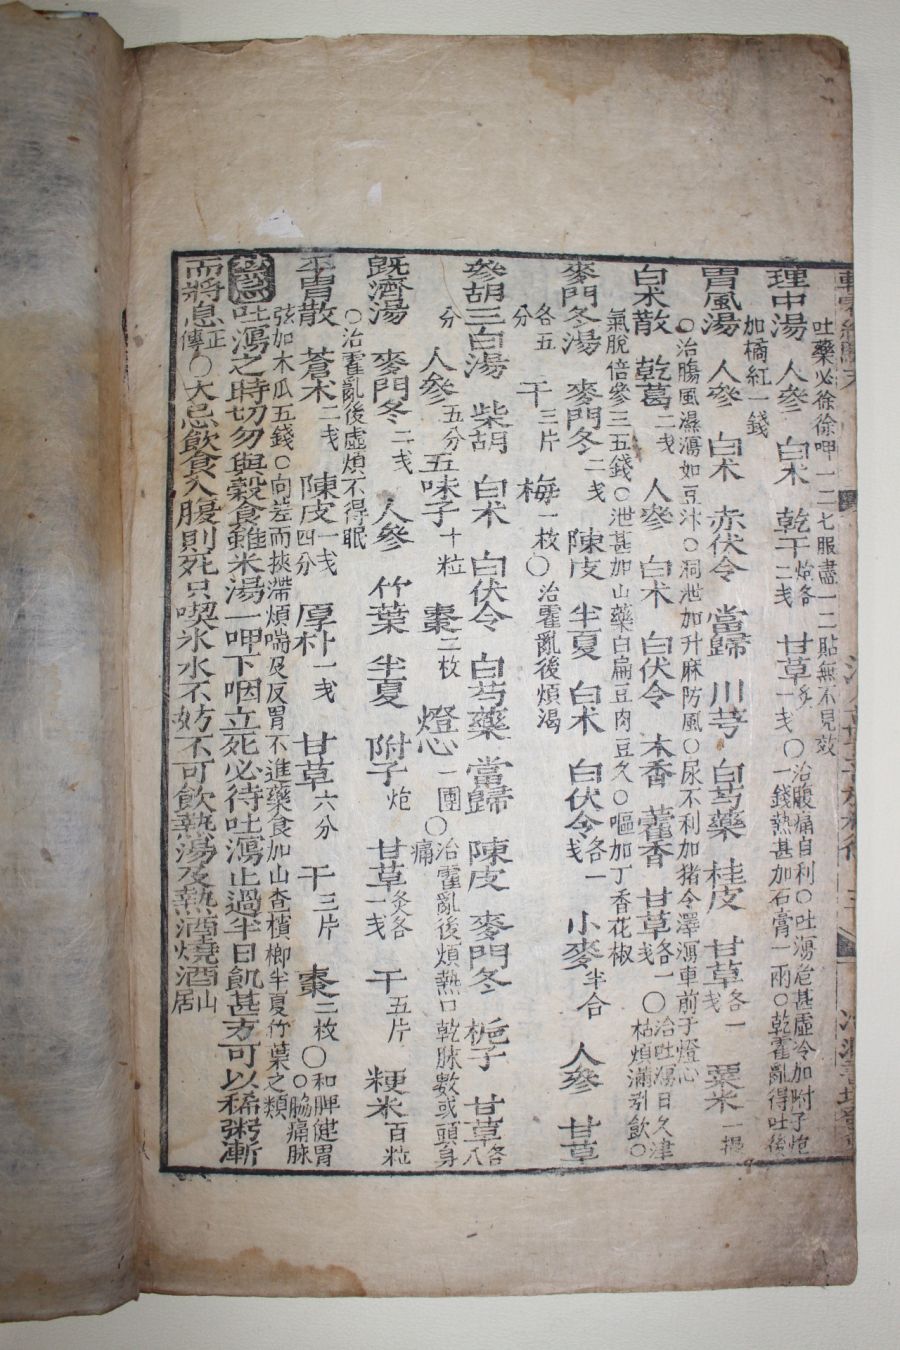 理中湯 人參 白朮 乾干炮各二戔 甘草炙一戔○治腹痛自利○吐瀉危甚虛冷加附子炮
一錢熱甚加石膏一兩○乾霍亂得吐後
吐藥必徐徐呷一二七服盡一二貼無不見效
加橘紅一錢
胃風湯 人參 白朮 赤伏令 當歸 川芎 白芍藥 桂皮 甘草各一戔 粟米一撮
○治腸風濕瀉如豆汁○洞泄加升麻防風○尿不利加猪令澤瀉車前子燈心
白朮散 乾葛二戔 人參 白朮 白伏令 木香 藿香 甘草各一戔○治吐瀉日久津
枯煩渴引飮○
氣脫倍參三五錢○泄甚加山藥白扁豆肉豆久○嘔加丁香花椒
麥門冬湯 麥門冬二戔 陳皮 半夏 白朮 白伏令各一戔 小麥半合 人參 甘草
各五分 干三片 梅一枚○治霍亂後煩渴
參胡三白湯 柴胡 白朮 白伏令 白芍藥 當歸 陳皮 麥門冬 梔子 甘草各八
分 人參五分 五味子十粒 棗二枚 燈心一團○治霍亂後煩熱口乾脉數或頭身
痛
旣濟湯 麥門冬二戔 人參 竹葉 半夏 附子炮 甘草炙各一戔 干五片 粳米百粒
○治霍亂後虛煩不得眠
平胃散 蒼朮二戔 陳皮一戔四分 厚朴一戔 甘草六分 干三片 棗二枚○和脾健胃
○脇痛脉
弦加木瓜五錢○向差而挾滯煩喘及反胃不進藥食加山查檳榔半夏竹葉之類
吐瀉之時切勿與穀食雖米湯一呷下咽立死必待吐瀉止過半日飢甚方可以稀粥漸
而將息正傳○大忌飮食入腹則死只喫氷水不妨不可飮熱湯及熱酒燒酒山居